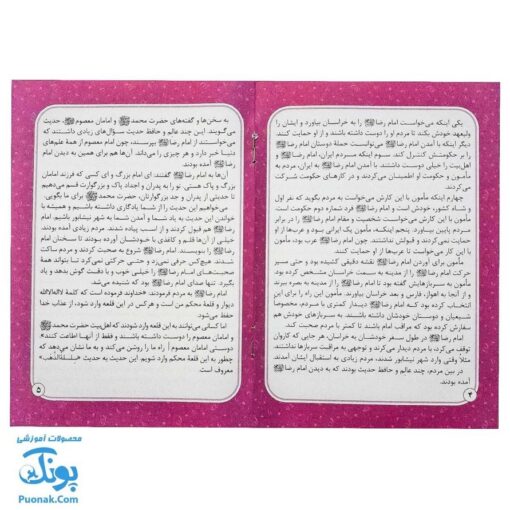 یکی اینکه می‌خواست امام رضا را به خراسان بیاورد و ایشان را
ولیعهد خودش بکند تا مردم او را دوست داشته باشند و از او حمایت کنند.
دیگر اینکه با آمدن امام رضا می‌توانست حملهٔ دوستان امام رضا
را بر حکومتش کنترل کند. سوم اینکه مردم ایران، امام رضا و
اهل‌بیت را خیلی دوست داشتند. با آمدن امام رضا به ایران، مردم به
مأمون و حکومت او اطمینان می‌کردند و در کارهای حکومت شرکت
می‌کردند.
چهارم اینکه مأمون با این کارش می‌خواست به مردم بگوید که نفر اول
و شاه کشور، خودش است و امام رضا فرد شماره دوم حکومت است.
مأمون با این کارش می‌خواست شخصیت و مقام امام رضا را در برابر
مردم پایین بیاورد. پنجم اینکه، مأمون یک ایرانی بود و عرب‌ها از او
حمایت نمی‌کردند و قبولش نداشتند. چون امام رضا عرب بود، مأمون
با این کار می‌خواست تا عرب‌ها از او حمایت کنند.
مأمون برای آوردن امام رضا نقشه دقیقی کشیده بود و حتی مسیر
حرکت امام رضا را از مدینه به سمت خراسان مشخص کرده بود.
مأمون به سربازهایش گفته بود تا امام رضا را از مدینه به بصره ببرند
و از آنجا به اهواز، فارس و بعد خراسان بیاورند. مأمون این راه را برای این
انتخاب کرده بود که امام رضا کمتر با مردم دیدار کند و مردم هم کمتر
شیعیان و دوستان خودشان داشته باشند. به سربازهای خودش هم
سفارش کرده بود که مراقب امام باشند تا کمتر با مردم صحبت کند.
امام رضا در طول سفر خودشان به خراسان، هر جایی که کاروان
توقف می‌کرد، با مردم دیدار می‌کرند و توجهی به مراقبت سربازها نداشتند.
مثلاً وقتی وارد شهر نیشابور شدند، مردم زیادی به استقبال ایشان آمدند.
در بین مردم، چند عالم و حافظ حدیث بودند که به دیدن امام رضا
آمده بودند.
۴
به سخن‌ها و گفته‌های حضرت محمد و امامان معصوم، حدیث
می‌گویند. این چند عالم و حافظ حدیث سؤال‌های زیادی داشتند که
می‌خواستند از امام رضا بپرسند، چون امام معصوم از همهٔ علم‌های
دنیا خبر دارد و هر چیزی را می‌داند. آن‌ها هم برای همین به دیدن امام
رضا آمده بودند.
آن‌ها به امام رضا گفتند: ای امام بزرگ و ای کسی که فرزند امامان
بزرگ و پاک هستی. تو را به پدران و اجداد پاک و بزرگوارت قسم می‌دهیم
تا حدیثی از پدران و جد بزرگوارتان، حضرت محمد برای ما بگویی.
می‌خواهیم این حدیث را از شما یادگاری داشته باشیم و همیشه با
خواندن این حدیث به یاد شما و آمدن شما به شهر نیشابور باشیم. امام
رضا هم قبول کردند و از اسب پیاده شدند. مردم زیادی آمده بودند.
خیلی از آن‌ها قلم و کاغذی با خودشان آورده بودند تا سخنان امام
رضا را بنویسند. امام رضا شروع به صحبت کردند و مردم ساکت
شدند. هیچ‌کس حرفی نمی‌زد و حتی حرکتی نمی‌کرد تا بتواند همهٔ
صحبت‌های امام رضا را خیلی خوب و با دقت گوش بدهد و یاد
بگیرد. تنها صدای امام رضا بود که شنیده می‌شد.
امام رضا به مردم فرمودند: خداوند فرموده است که کلمهٔ لااله‌الاالله
دیوار و قلعهٔ محکم من است و هرکس در این قلعه وارد شود، از عذاب خدا
حفظ می‌شود.
اما کسانی می‌توانند به این قلعه وارد شوندند که اهل‌بیت حضرت محمد
و امامان معصوم را دوست داشته باشند و فقط از آنها اطاعت کنند».
دوستی امامان معصوم راه ما را روشن می‌کند و به ما نشان می‌دهد که
چطور به این قلعهٔ محکم وارد شویم. این حدیث به حدیث «سلسلةالذهب»
معروف است.
۵
محصولات آموزشی
پونک
Puonak.Com